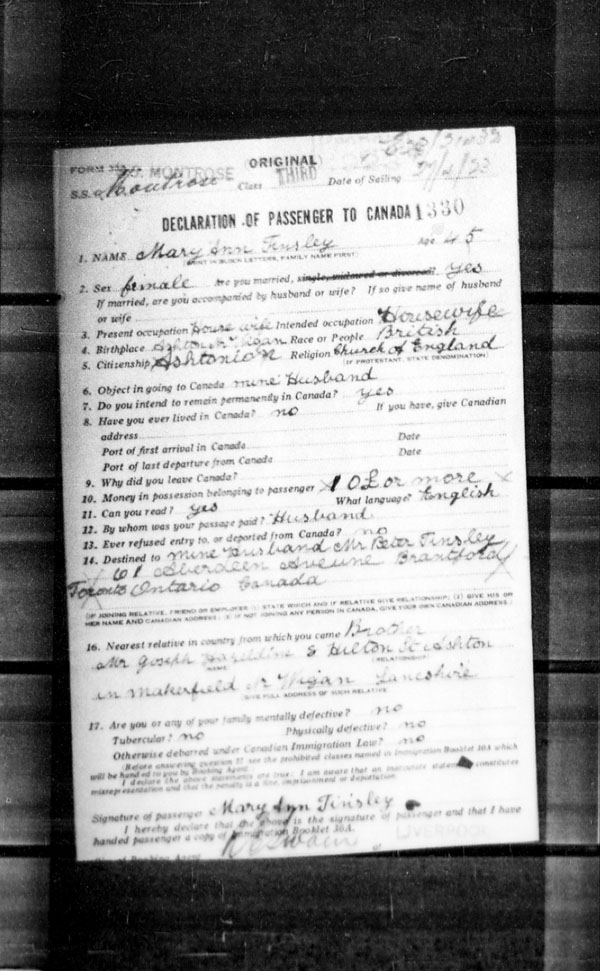 ORIGINAL
FORM
S.S. MONTROSE
S.S. Montrose Class THIRD Date of Sailing 27/4/23
DECLARATION OF PASSENGER TO CANADA 1330
1. NAME Mary Ann Tinsley Age 45
(PRINT IN BLOCK LETTERS, FAMILY NAME FIRST)
2. Sex female Are you married, single, widowed or divorced? yes
If married, are you accompanied by husband or wife? If so give name of husband
or wife
3. Present occupation House wife Intended occupation Housewife
4. Birthplace Ashton Nr Wigan Race or People British
5. Citizenship Religion Church of England
(IF PROTESTANT, STATE DENOMINATION)
6. Object in going to Canada mine Husband
7. Do you intend to remain permanently in Canada? yes
8. Have you ever lived in Canada? no If you have, give Canadian
address
Port of first arrival in Canada Date
Port of last departure from Canada Date
9. Why did you leave Canada?
10. Money in possession belonging to passenger 10£ or more
11. Can you read? yes What language? English
12. By whom was your passage paid? Husband
13. Ever refused entry to, or deported from Canada? no
14. Destined to mine Husband Mr Peter Tinsley
61 Aberdeen Aveune Brantford
Toronto Ontario Canada
(IF JOINING RELATIVE, FRIEND OR EMPLOYER (1) STATE WHICH AND IF RELATIVE GIVE RELATIONSHIP; (2) GIVE HIS OR
HER NAME AND CANADIAN ADDRESS; IF NOT JOINING ANY PERSON IN CANADA, GIVE YOUR OWN CANADIAN ADDRESS)
16. Nearest relative in country from which you came Brother
(RELATIONSHIP)
Mr Joseph 8 Hilton St Ashton
NAME
in Makerfield Nr Wigan Lancshire
GIVE FULL ADDRESS OF SUCH RELATIVE
17. Are you or any of your family mentally defective? no
Tubercular? no Physically defective? no
Otherwise debarred under Canadian Immigration Law? no
Before answering question 17 see the prohibited classes named in Immigration Booklet 30A which
will be handed to you by Booking Agent.
I declare the above statements are true: I am aware that an inaccurate statement constitutes
misrepresentation and that the penalty is a fine, imprisonment or deportation.
Signature of passenger Mary Ann Tinsley
I hereby declare that the above is the signature of passenger and that I have
handed passenger a copy of Immigration Booklet 30A.
Booking Agent LIVERPOOL